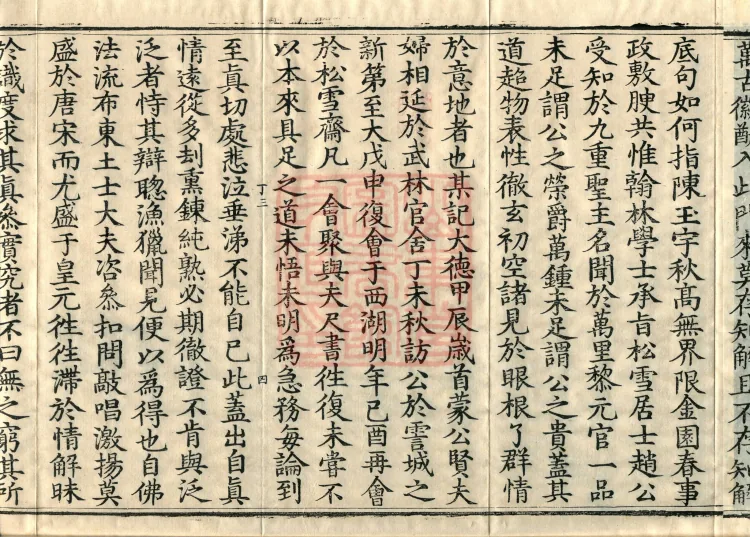 萬古徽猷入此門來莫存知解且不存知解
底句如何指陳玉宇秋高無界限金園春事
政敷腴共惟翰林學士承旨松雪居士趙公
受知於九重聖主名聞於萬里黎元官一品
未足謂公之榮爵萬鍾未足謂公之貴蓋其
道超物表性徹玄初空諸見於眼根了群情
於意地者也某記大德甲辰歲首蒙公賢夫
婦相延於武林官舍丁未秋訪公於霅城之
新第至大戊申復會于西湖明年己酉再會
於松雪齋凡一會聚與夫尺書往復未甞不
以本來具足之道未悟未明爲急務每論到
丁三
四
至眞切處悲泣垂涕不能自已此蓋出自眞
情遠從多刦熏鍊純熟必期徹證不肯與泛
泛者恃其辯聦漁獵聞見便以爲得也自佛
法流布東土士大夫咨叅扣問敲唱激揚莫
盛於唐宋而尤盛于皇元徃徃滯於情解昧
於識度求其眞叅實究者不曰無之窮其所